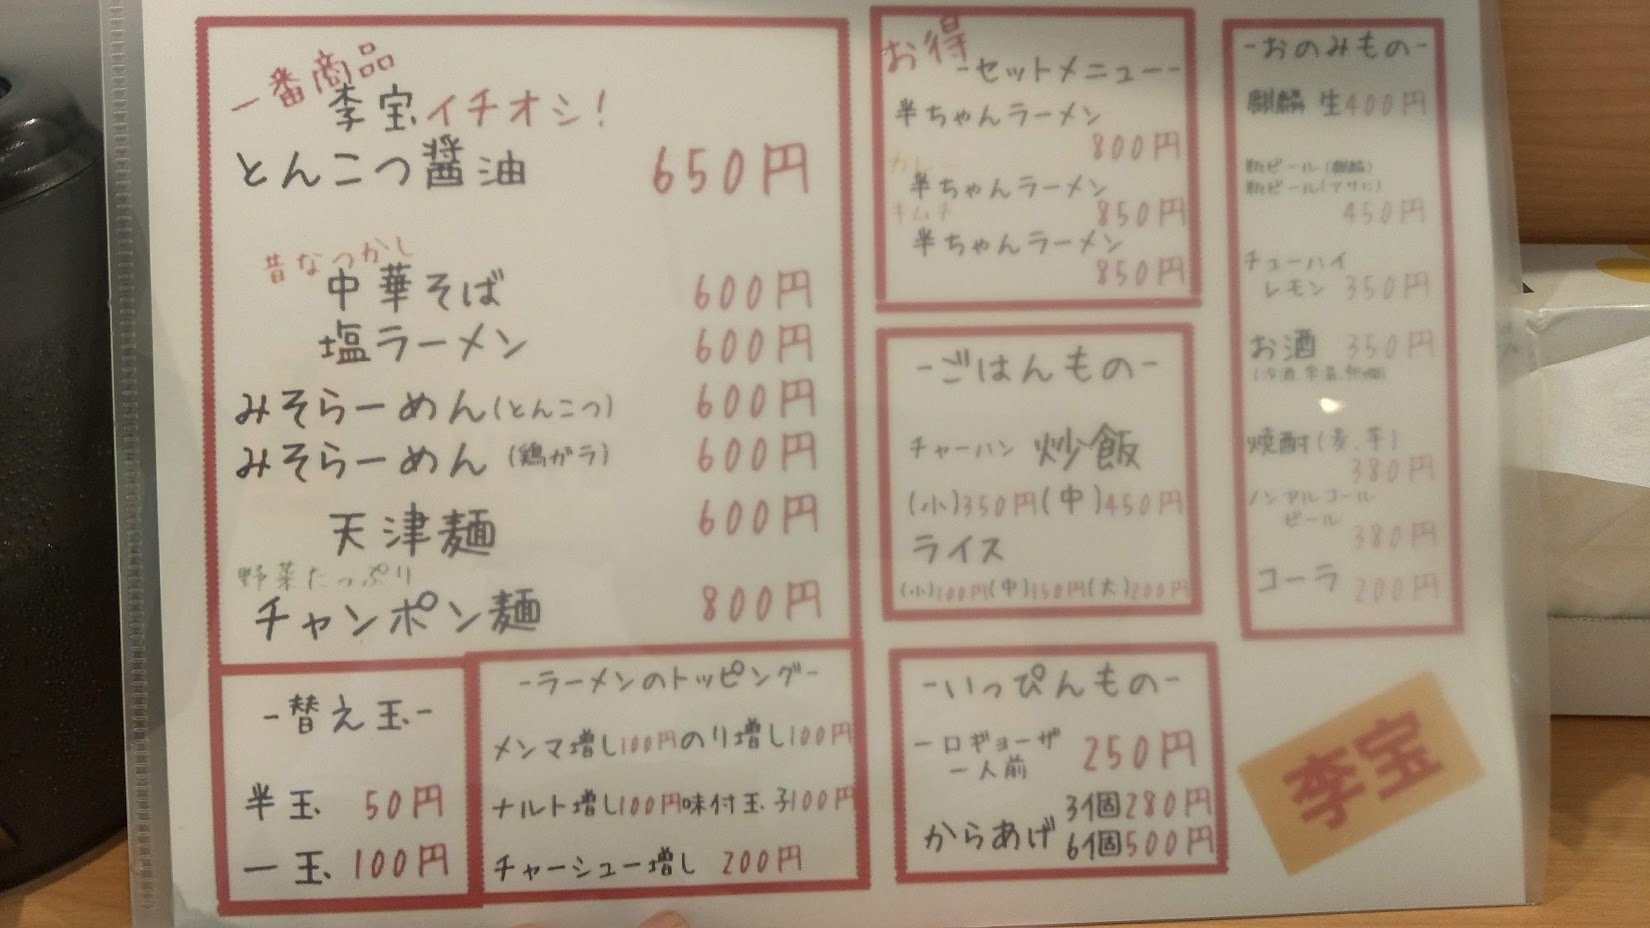 一番商品
李宝イチオシ!
とんこつ醤油 650円
昔なつかし
中華そば 600円
塩ラーメン 600円
みそらーめん(とんこつ) 600円
みそらーめん(鶏ガラ) 600円
天津麺 600円
野菜たっぷり
チャンポン麺 800円
-替え玉-
半玉 50円
一玉 100円
-ラーメンのトッピング-
メンマ増し100円のり増し100円
ナルト増し100円味付玉子100円
チャーシュー増し 200円
お得
-セットメニュー-
半ちゃんラーメン
800円
カレー
半ちゃんラーメン
850円
キムチ
半ちゃんラーメン
850円
-ごはんもの-
チャーハン 炒飯
(小)350円(中)450円
ライス
(小)100円(中)150円(大)200円
-いっぴんもの-
一口ギョーザ
一人前 250円
からあげ
3個280円
6個500円
-おのみもの-
麒麟 生400円
瓶ビール(麒麟)
瓶ビール(アサヒ)
450円
チューハイ
レモン 350円
お酒 350円
焼酎(麦.芋)
380円
ノンアルコール
ビール
380円
コーラ 200円
李宝